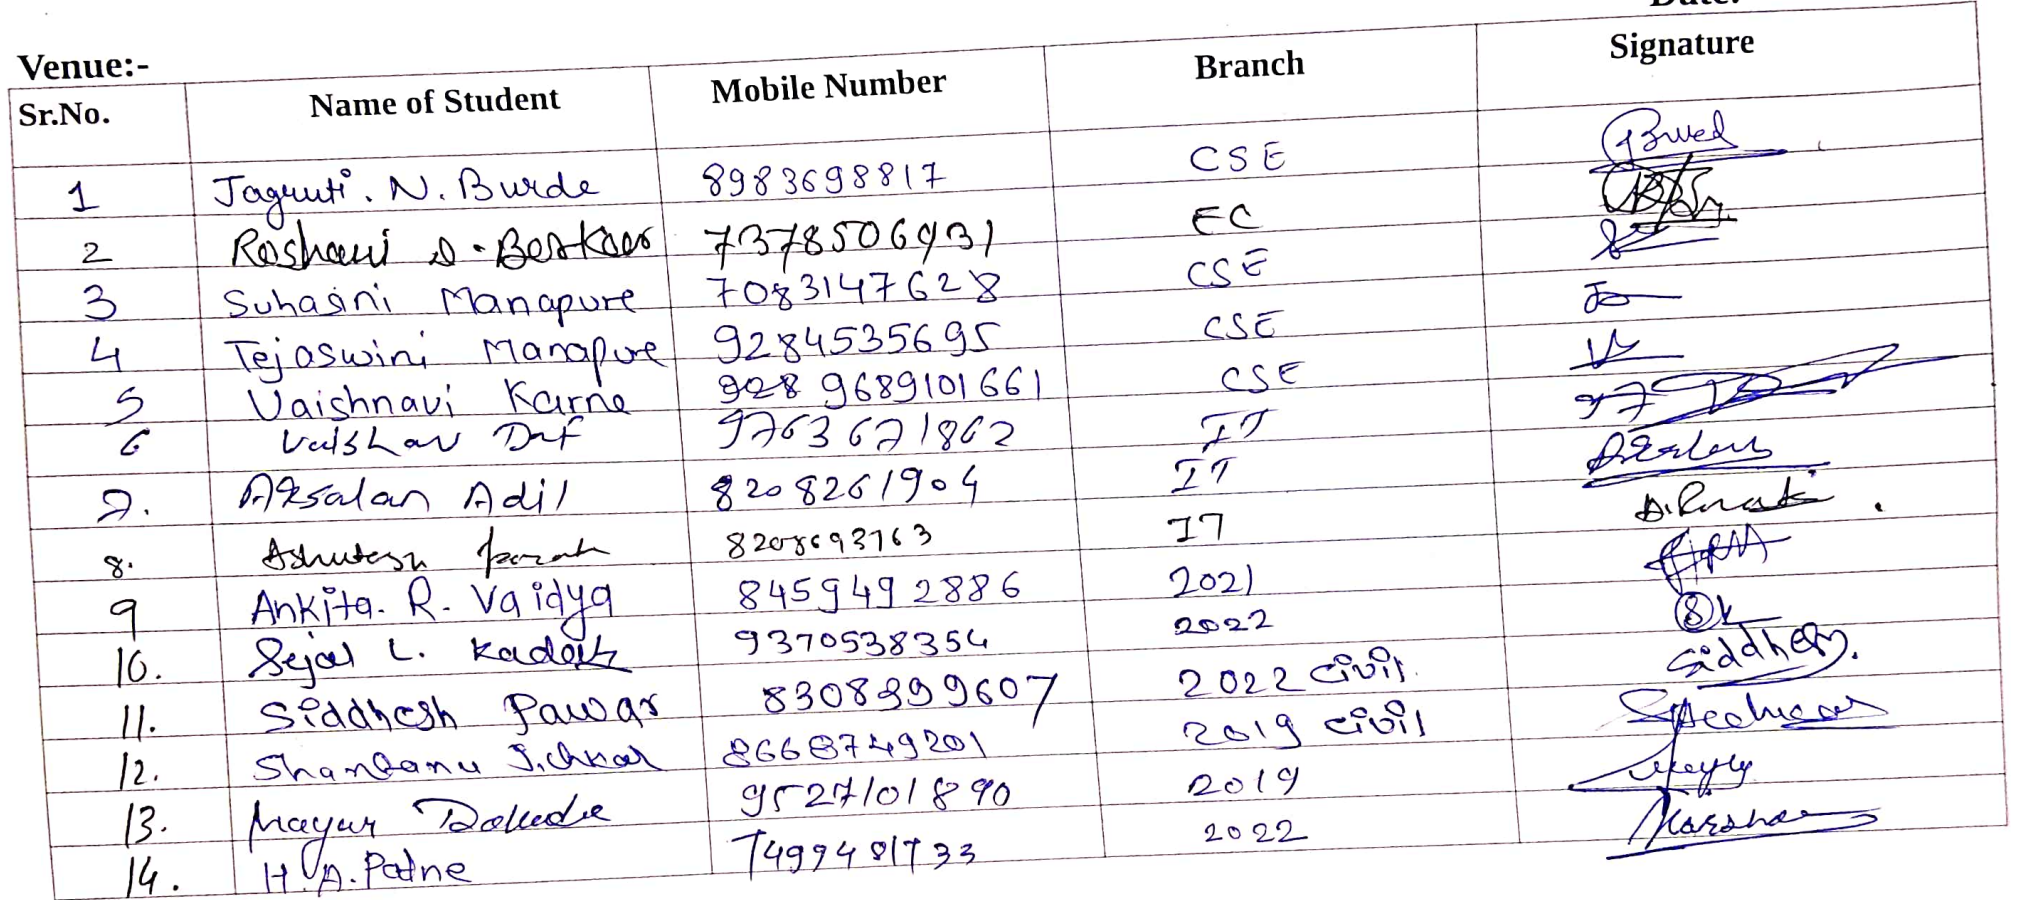 Venue:-
Sr.No. Name of Student Mobile Number Branch Signature
1 Jagruti. N. Burde 8983698817 CSE
2 Roshani D. 7378506931 EC
3 Suhasini Manapure 7083147628 CSE
4 Tejaswini Manapure 9284535695 CSE
5 Vaishnavi Karne 928 9689101661 CSE
6 9763671862 IT
7. Arsalan Adil 8208261904 IT
8. Ashutosh 8208693763 IT
9 Ankita. R. Vaidya 8459492886 2021
10. Sejal L. 9370538354 2022
11. Siddhesh Pawar 8308999607 2022 Civil. Siddhesh.
12. Shantanu 8668749201 2019 Civil
13. Mayur 9527101890 2019
14. H.A. Patne 7499481733 2022